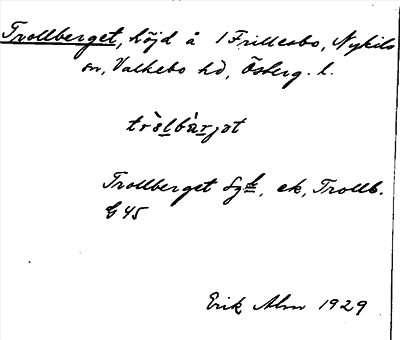 Trollberget, höjd å 1 Frillesbo, Nykils
sn, Valkebo hd, Östberg. l.
tròlbàrjət
Trollberget Sg, ek, Trollb.
G 45
Erik Alm 1929